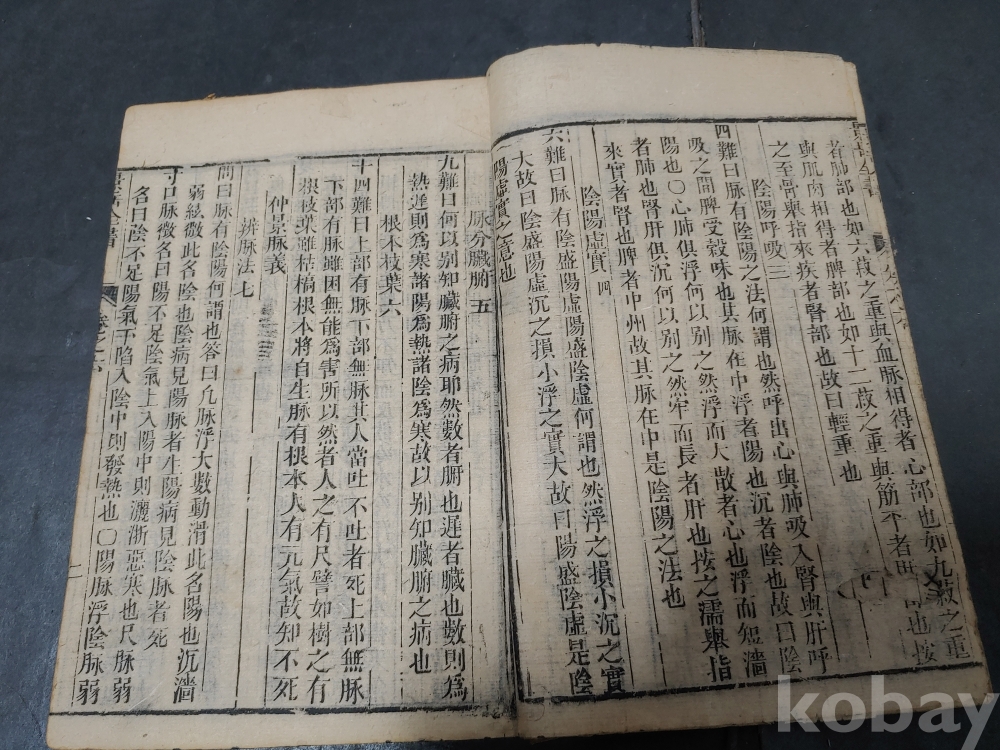 者肺部也如六菽之重與血脈相得者心部也如九菽之重
與肌肉相得者脾部也如十二菽之重與筋平者肝部也按
之至骨舉指來疾者腎部也故曰輕重也
陰陽呼吸三
四難曰脈有陰陽之法何謂也然呼出心與肺吸入腎與肝呼
吸之間脾受穀味也其脈在中浮者陽也沉者陰也故曰陰
陽也〇心肺俱浮何以別之然浮而大散者心也浮而短濇
者肺也腎肝俱沉何以別之然牢而長者肝也按之濡舉指
來實者腎也脾者中州故其脈在中是陰陽之法也
陰陽虛實四
六難曰脈有陰盛陽虛陽盛陰虛何謂也然浮之損小沉之實
大故曰陰盛陽虛沉之損小浮之實大故曰陽盛陰虛是陰
陽虛實之意也
脈分臟腑五
九難曰何以別知臟腑之病耶然數者腑也遲者臟也數則為
熱遲則為寒諸陽為熱諸陰為寒故以別知臟腑之病也
根本枝葉六
十四難曰上部有脈下部無脈其人當吐不吐者死上部無脈
下部有脈雖困無能為害所以然者人之有尺譬如樹之有
根枝葉雖枯槁根本將自生脈有根本人有元氣故知不死
仲景脈義
辨脈法七
問曰脈有陰陽何謂也答曰凡脈浮大數動滑此名陽也沉濇
弱弦微此名陰也陰病見陽脈者生陽病見陰脈者死
寸口脈微名曰陽不足陰氣上入陽中則灑淅惡寒也尺脈弱
名曰陰不足陽氣下陷入陰中則發熱也〇陽脈浮陰脈弱
卷之六
二
kobay